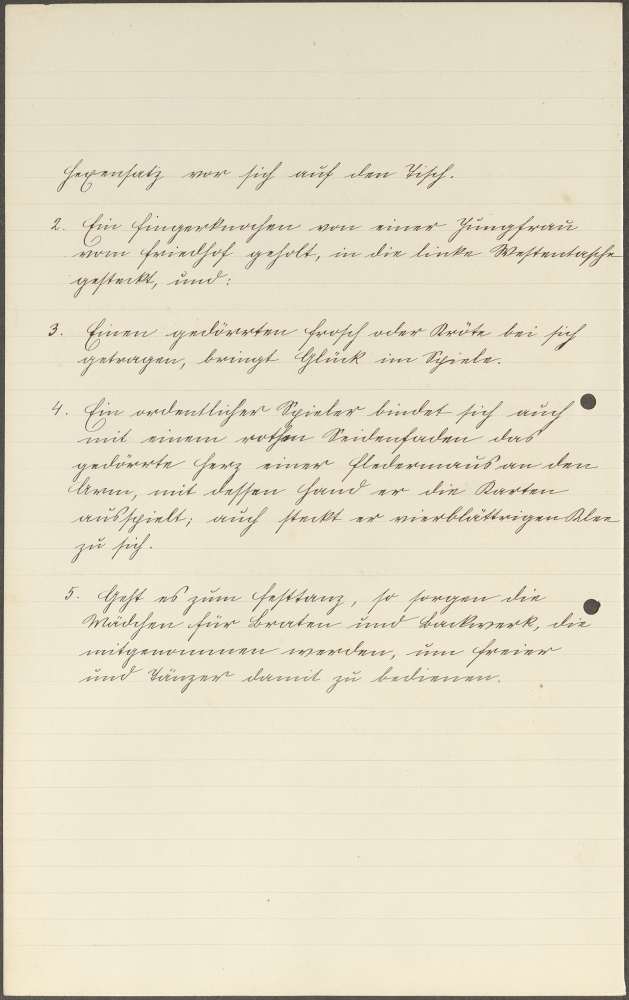 Hexensatz vor sich auf den Tisch.
2. Ein Fingerknochen von einer Jungfrau
vom Friedhof geholt, in die linke Westentasche
gesteckt, und:
3. Einen gedörrten Frosch oder Kröte bei sich
getragen, bringt Glück im Spiele.
4. Ein ordentlicher Spieler bindet sich auch
mit einem rothen Seidenfaden das
gedörrte Herz einer Fledermaus an den
Arm, mit dessen Hand er die Karten
ausspielt; auch steckt er vierblättrigen Klee
zu sich.
5. Geht es zum Festtanz, so sorgen die
Mädchen für Braten und Backwerk, die
mitgenommen werden, um Freier
und Tänzer damit zu bedienen.